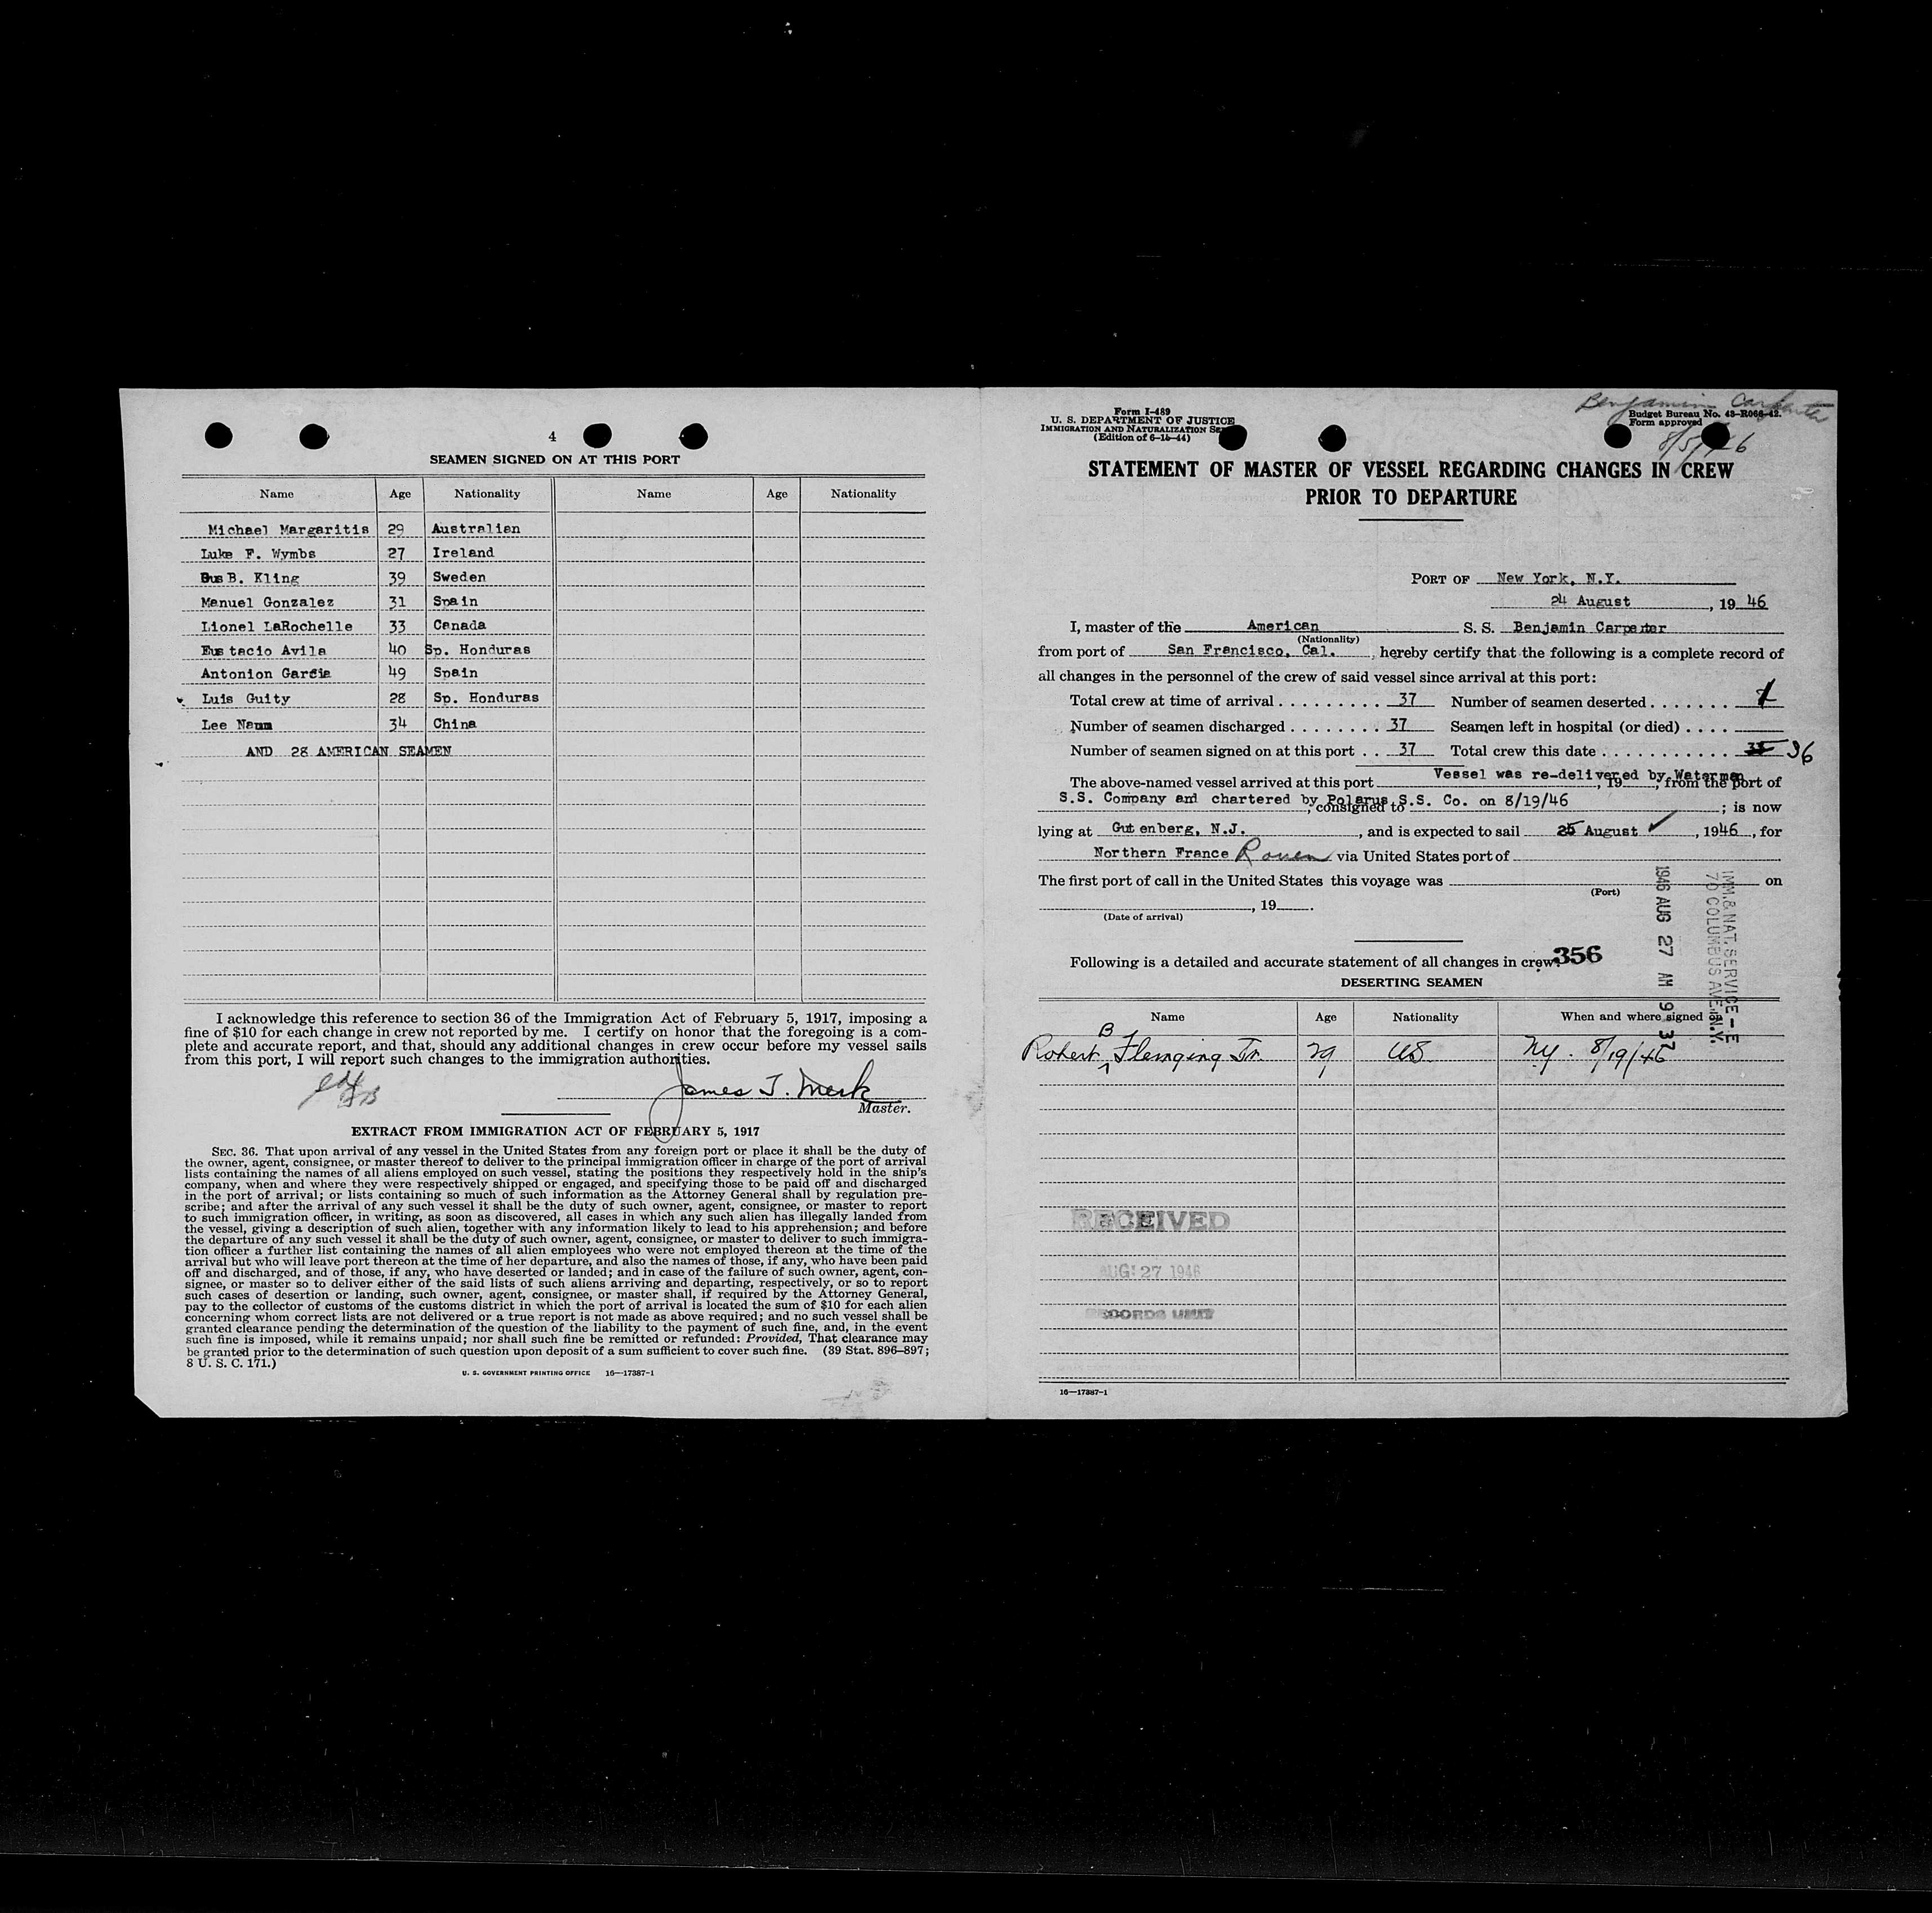 4
SEAMEN SIGNED ON AT THIS PORT
Name Age Nationality Name Age Nationality
Michael Margaritis 29 Australian
Luke F. Wymbs 27 Ireland
Gus B. Kling 39 Sweden
Manuel Gonzalez 31 Spain
Lionel LaRochelle 33 Canada
Eustacio Avila 40 Sp. Honduras
Antonion Garcia 49 Spain
Luis Guity 28 Sp. Honduras
Lee 34 China
AND 28 AMERICAN SEAMEN
I acknowledge this reference to section 36 of the Immigration Act of February 5, 1917, imposing a
fine of $10 for each change in crew not reported by me. I certify on honor that the foregoing is a com-
plete and accurate report, and that, should any additional changes in crew occur before my vessel sails
from this port, I will report such changes to the immigration authorities.
James J. Merk
Master.
EXTRACT FROM IMMIGRATION ACT OF FEBRUARY 5, 1917
SEC. 36. That upon arrival of any vessel in the United States from any foreign port or place it shall be the duty of
the owner, agent, consignee, or master thereof to deliver to the principal immigration officer in charge of the port of arrival
lists containing the names of all aliens employed on such vessel, stating the positions they respectively hold in the ship's
company, when and where they were respectively shipped or engaged, and specifying those to be paid off and discharged
in the port of arrival; or lists containing so much of such information as the Attorney General shall by regulation pre-
scribe; and after the arrival of any such vessel it shall be the duty of such owner, agent, consignee, or master to report
to such immigration officer, in writing, as soon as discovered, all cases in which any such alien has illegally landed from
the vessel, giving a description of such alien, together with any information likely to lead to his apprehension; and before
the departure of any such vessel it shall be the duty of such owner, agent, consignee, or master to deliver to such immigra-
tion officer a further list containing the names of all alien employees who were not employed thereon at the time of the
arrival but who will leave port thereon at the time of her departure, and also the names of those, if any, who have been paid
off and discharged, and of those, if any, who have deserted or landed; and in case of the failure of such owner, agent, con-
signee, or master so to deliver either of the said lists of such aliens arriving and departing, respectively, or so to report
such cases of desertion or landing, such owner, agent, consignee, or master shall, if required by the Attorney General,
pay to the collector of customs of the customs district in which the port of arrival is located the sum of $10 for each alien
concerning whom correct lists are not delivered or a true report is not made as above required; and no such vessel shall be
granted clearance pending the determination of the question of the liability to the payment of such fine, and, in the event
such fine is imposed, while it remains unpaid; nor shall such fine be remitted or refunded: Provided, That clearance may
be granted prior to the determination of such question upon deposit of a sum sufficient to cover such fine. (39 Stat. 896–897;
8 U. S. C. 171.)
U. S. GOVERNMENT PRINTING OFFICE 16—17387-1
Benjamin Carpenter
8/5/46
Form I-489
U. S. DEPARTMENT OF JUSTICE
IMMIGRATION AND NATURALIZATION
(Edition of 6-14-44)
Budget Bureau No. 43-R066-42.
Form approved
STATEMENT OF MASTER OF VESSEL REGARDING CHANGES IN CREW
PRIOR TO DEPARTURE
PORT OF New York, N.Y.
24 August, 1946
I, master of the American S. S. Benjamin Carpenter
(Nationality)
from port of San Francisco, Cal., hereby certify that the following is a complete record of
all changes in the personnel of the crew of said vessel since arrival at this port:
Total crew at time of arrival 37 Number of seamen deserted 1
Number of seamen discharged 37 Seamen left in hospital (or died)
Number of seamen signed on at this port 37 Total crew this date 36
The above-named vessel arrived at this port Vessel was re-delivered by Waterman, 19, from the port of
S.S. Company and chartered by Polarus S.S. Co. on 8/19/46, consigned to ; is now
lying at Gutenberg, N.J., and is expected to sail 25 August, 1946, for
Northern France Rouen via United States port of
The first port of call in the United States this voyage was on
(Port)
, 19
(Date of arrival)
IMM. & NAT. SERVICE - E
70 COLUMBUS AVE. N.Y.
1946 AUG 27 AM 9 37
Following is a detailed and accurate statement of all changes in crew:
356
DESERTING SEAMEN
Name Age Nationality When and where signed on
Robert B Flemging Jr. 29 US NY. 8/19/46
RECEIVED
AUG 27 1946
RECORDS UNIT
16—17387-1